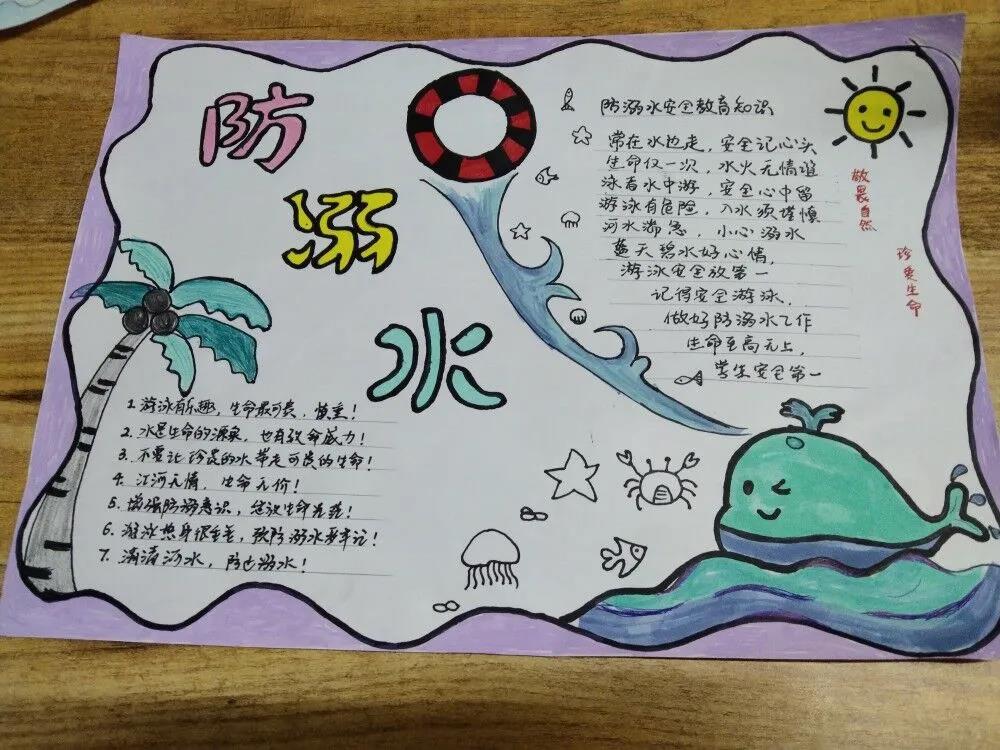 防
溺
水
防溺水安全教育知识
常在水边走，安全记心头
生命仅一次，水火无情谁
泳者水中游，安全心中留
游泳有危险，入水须谨慎
河水湍急，小心溺水
蓝天碧水好心情，
游泳安全放第一
记得安全游泳，
做好防溺水工作
生命至高无上，
学生安全第一
敬畏自然
珍爱生命
1. 游泳有乐趣，生命最可贵，慎重！
2. 水是生命的源泉，也有致命威力！
3. 不要让珍贵的水带走可贵的生命！
4. 江河无情，生命无价！
5. 增强防溺意识，绽放生命光彩！
6. 游泳热身很重要，预防溺水要牢记！
7. 清清河水，防止溺水！